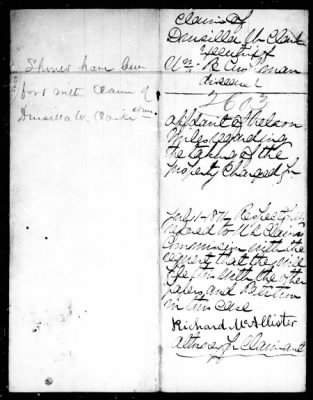 Should have been
for with Claim of
Drusilla W. Clark
Claim of
Drusilla W Clark
Executrix of
Wm B
deceased
2603
affidavit of Nelson
regarding
the taking of the
property Charged for
Respectfully
referred to US Claims
Commission with the
request that the will
file this with the other
papers and Petition
in this case
Richard McAllister
attorney for Claimant